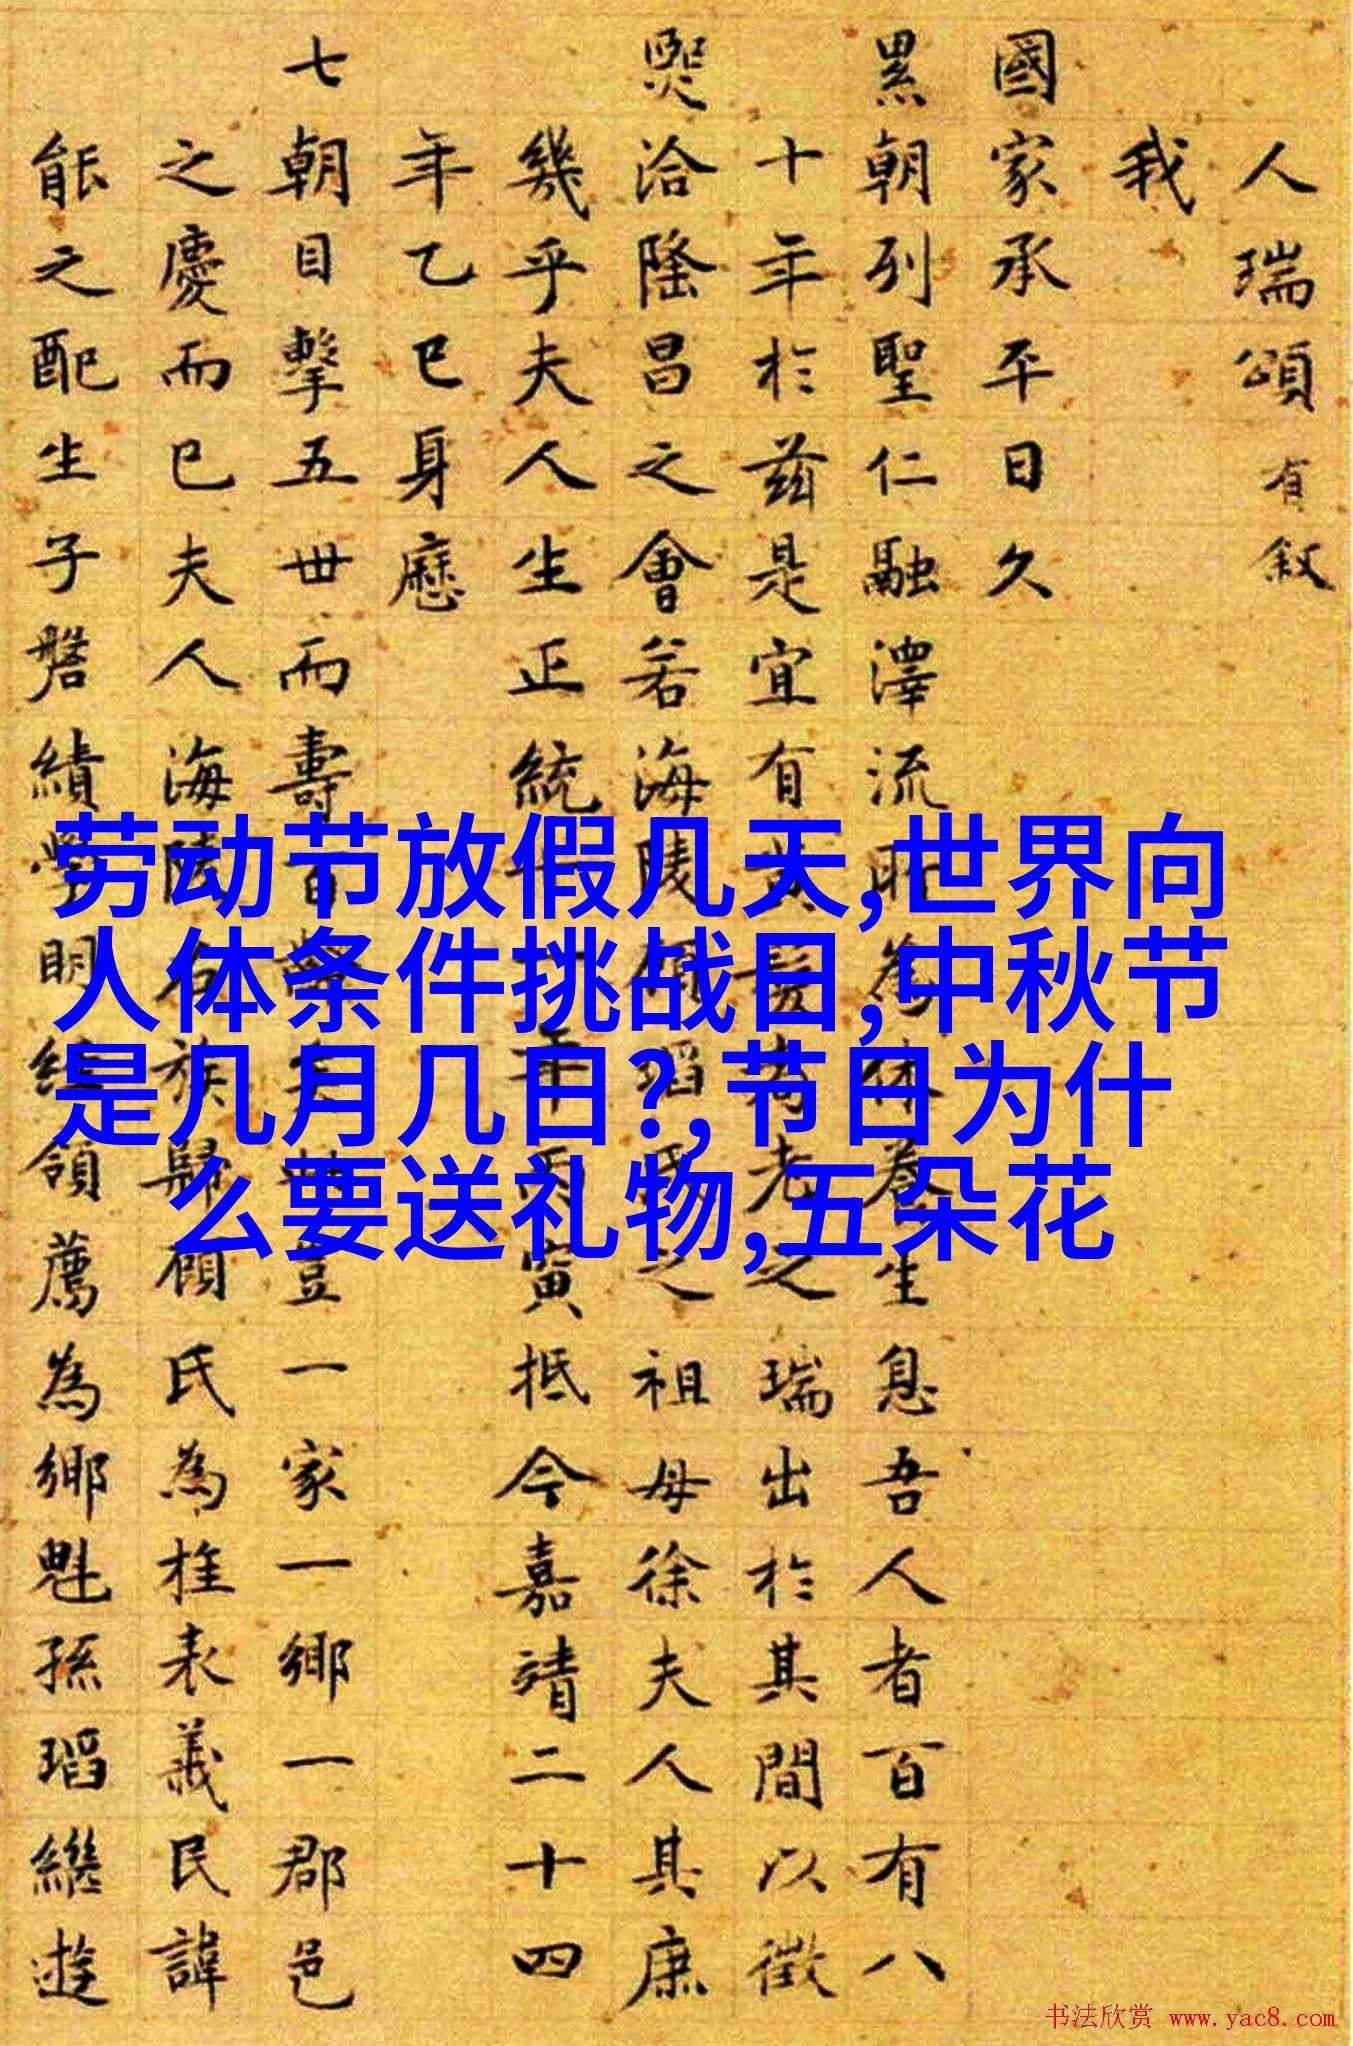 人瑞頌有敘
我
國家承平日久
累朝列聖仁融澤流
休養生息吾人者百有八
十年於茲是宜有黃髮
老之瑞出於其間以徵
熙洽隆昌之會若海陵
之祖母徐夫人其庶
幾乎夫人生正統十一年丙寅抵今嘉靖二十四
年乙巳身歷
七朝目擊五世而壽百
豈一家一鄉一郡邑
之慶而已夫人海陵右族歸顧氏為推表義民諱
能之配生子磐績學明經領薦為鄉魁孫瑫繼遊
劳动节放假几天,世界向
人体条件挑战日,中秋节
是几月几日?,节日为什
么要送礼物,五朵花
书法欣赏 www.yac8.com